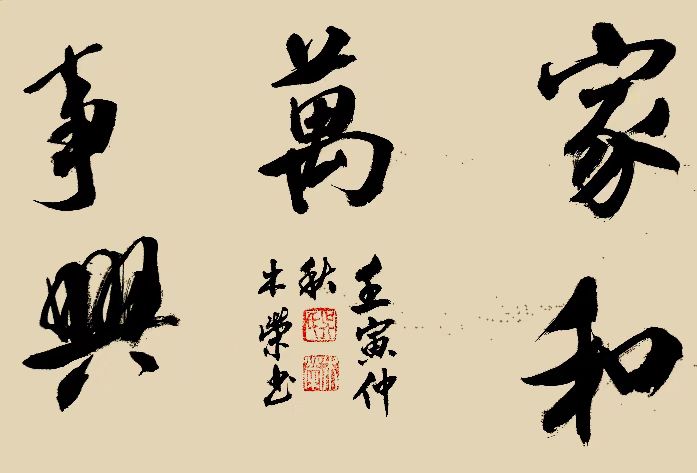 家和
萬
事興
壬寅仲
秋
木榮书